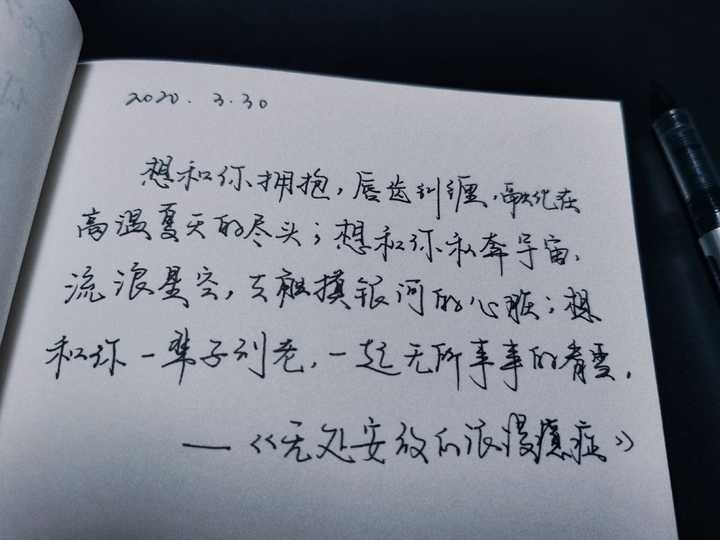 2020.3.30
想和你拥抱，唇齿纠缠，融化在
高温夏天的尽头；想和你私奔宇宙，
流浪星空，去触摸银河的心脏；想
和你一辈子到老，一起无所事事的看雪。
——《无处安放的浪漫癔症》